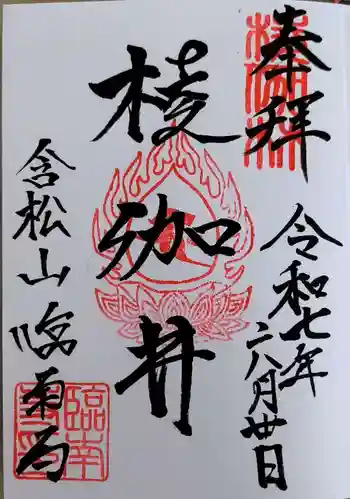 奉拝
令和七年
八月丗日
棱伽林
含松山
臨南寺
臨南